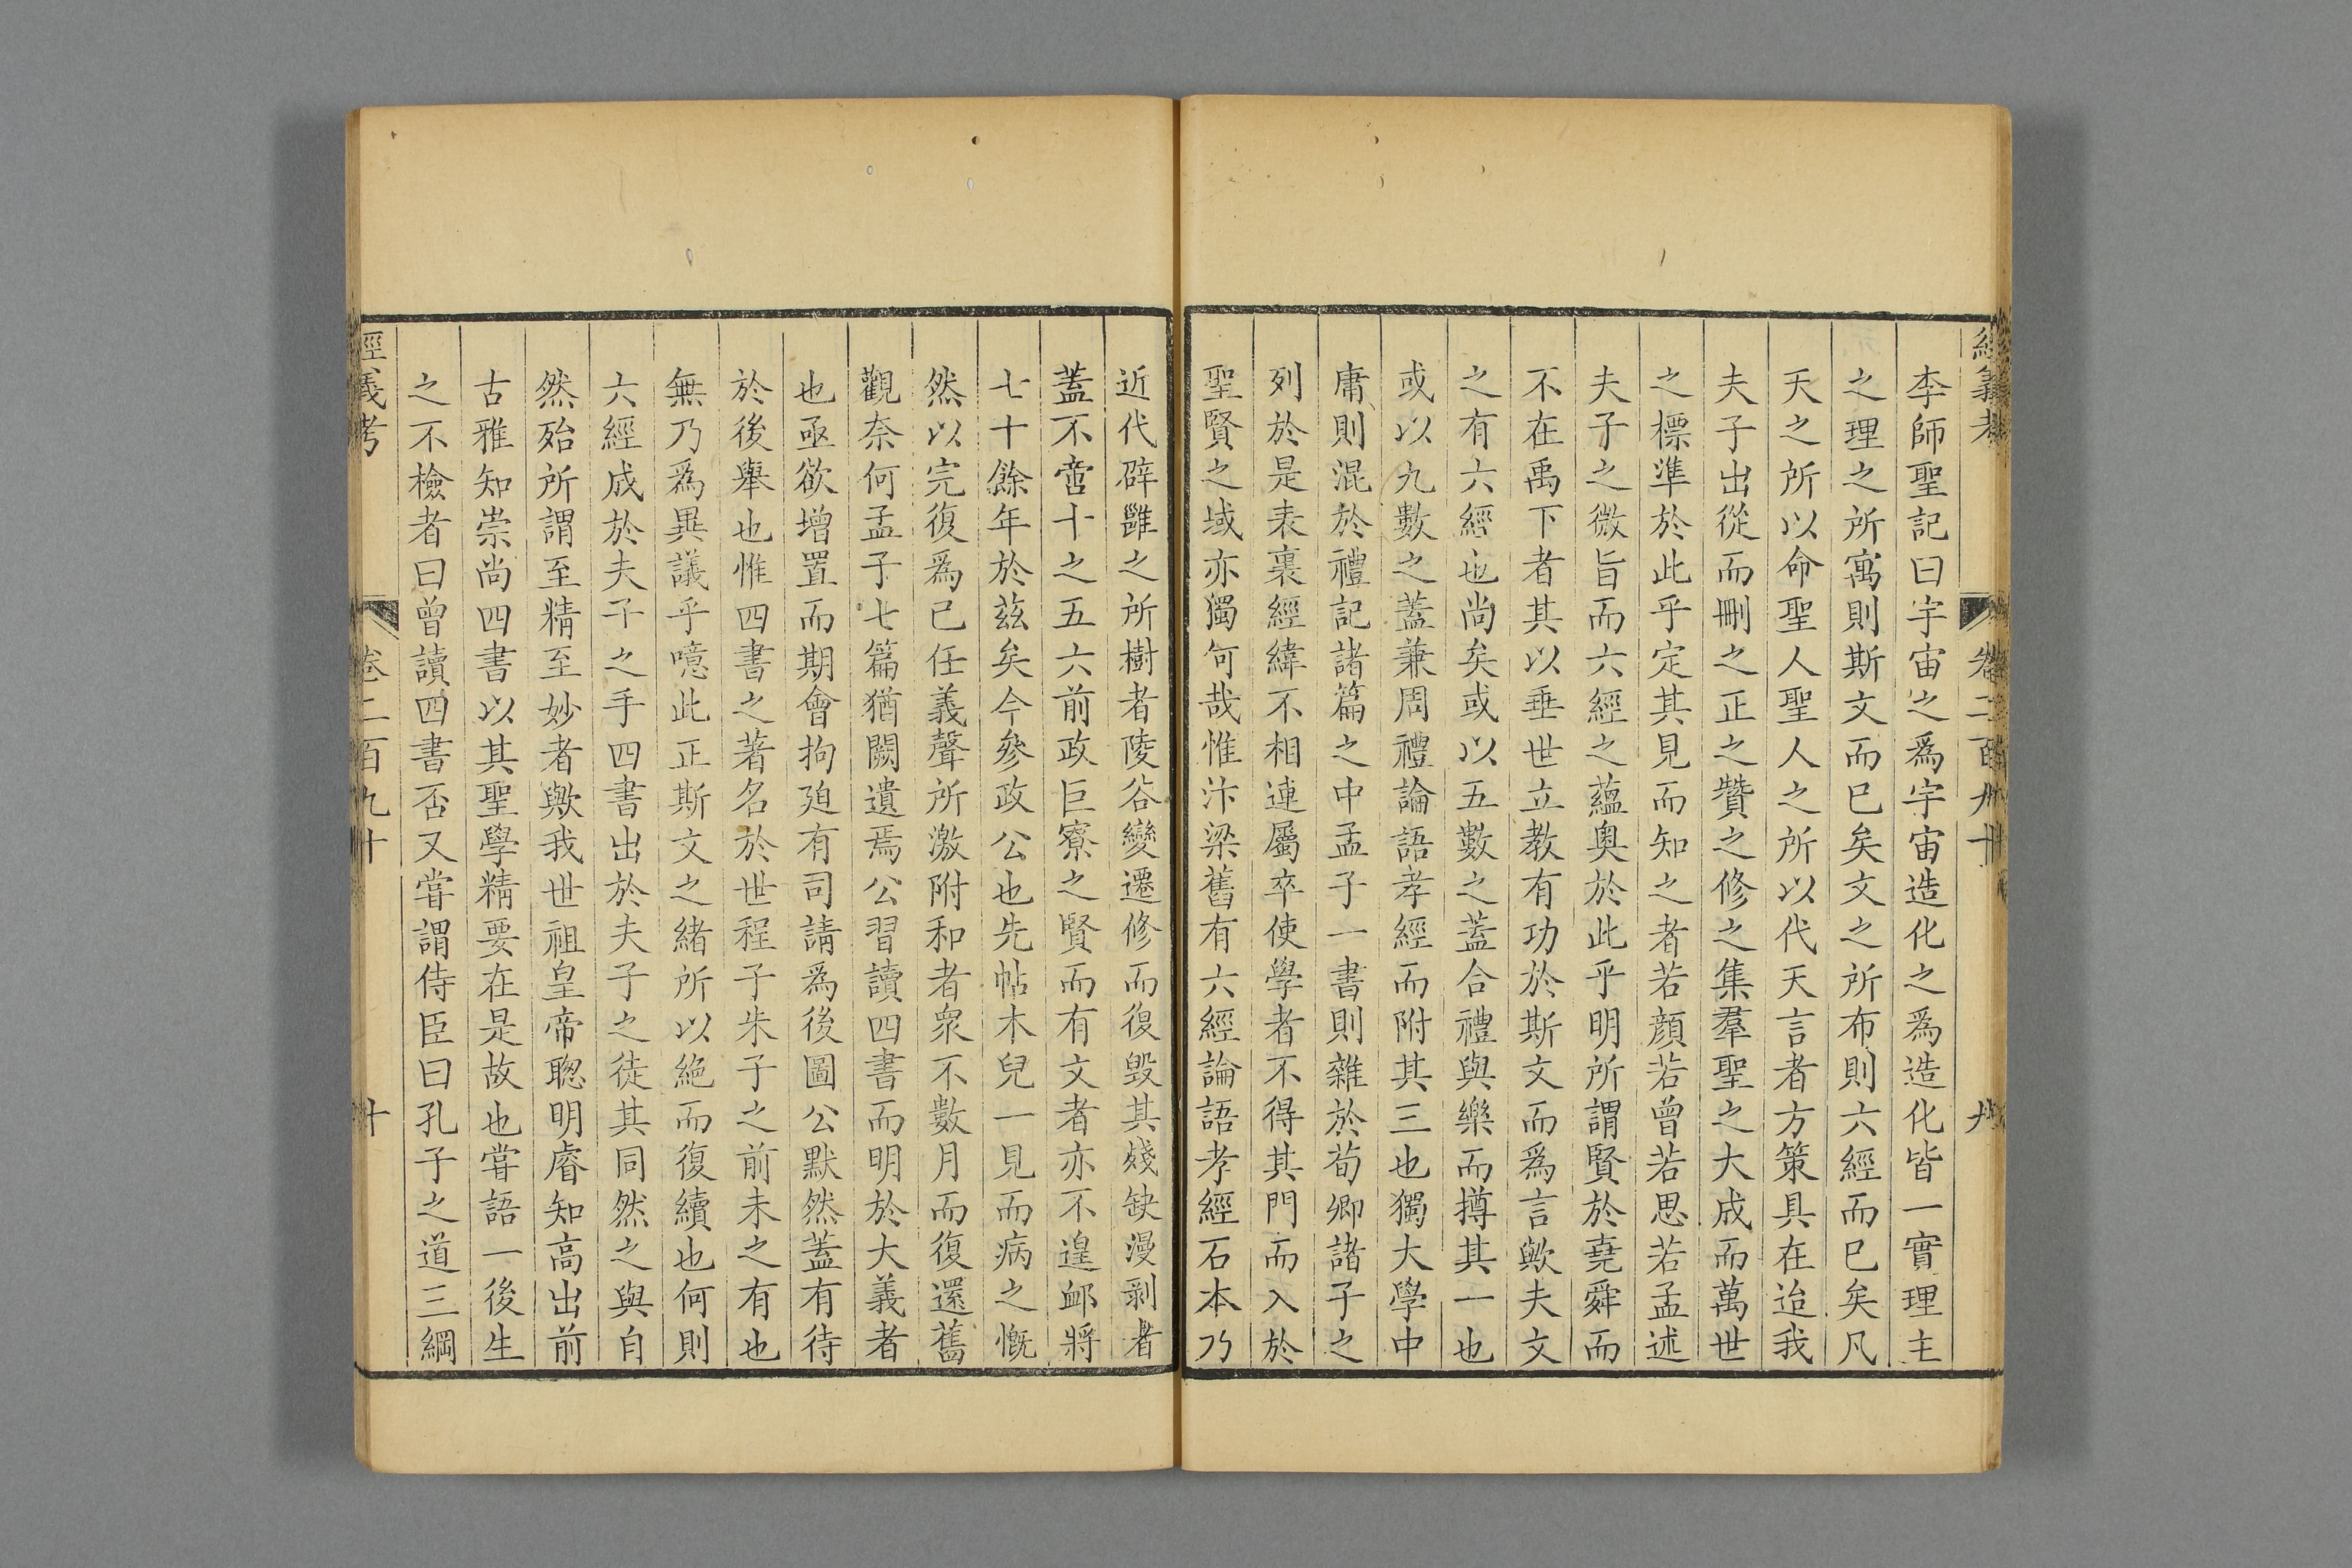 經義考 卷二百九十 九
李師聖記曰宇宙之爲宇宙造化之爲造化皆一實理主
之理之所寓則斯文而已矣文之所布則六經而已矣凡
天之所以命聖人聖人之所以代天言者方策具在迨我
夫子出從而刪之正之贊之修之集羣聖之大成而萬世
之標準於此乎定其見而知之者若顔若曾若思若孟述
夫子之微旨而六經之蘊奧於此乎明所謂賢於堯舜而
不在禹下者其以垂世立教有功於斯文而爲言歟夫文
之有六經也尚矣或以五數之蓋合禮與樂而撙其一也
或以九數之蓋兼周禮論語孝經而附其三也獨大學中
庸則混於禮記諸篇之中孟子一書則雜於荀卿諸子之
列於是表裏經緯不相連屬卒使學者不得其門而入於
聖賢之域亦獨何哉惟汴梁舊有六經論語孝經石本乃
近代辟雝之所樹者陵谷變遷修而復毀其殘缺漫剥者
蓋不啻十之五六前政巨寮之賢而有文者亦不遑卹將
七十餘年於茲矣今參政公也先帖木兒一見而病之慨
然以完復爲己任義聲所激附和者衆不數月而復還舊
觀奈何孟子七篇猶闕遺焉公習讀四書而明於大義者
也亟欲增置而期會拘廹有司請爲後圖公默然蓋有待
於後舉也惟四書之著名於世程子朱子之前未之有也
無乃爲異議乎噫此正斯文之緒所以絶而復續也何則
六經成於夫子之手四書出於夫子之徒其同然之與自
然殆所謂至精至妙者歟我世祖皇帝聰明睿知高出前
古雅知崇尚四書以其聖學精要在是故也嘗語一後生
之不檢者曰曾讀四書否又嘗謂侍臣曰孔子之道三綱
經義考 卷二百九十 十